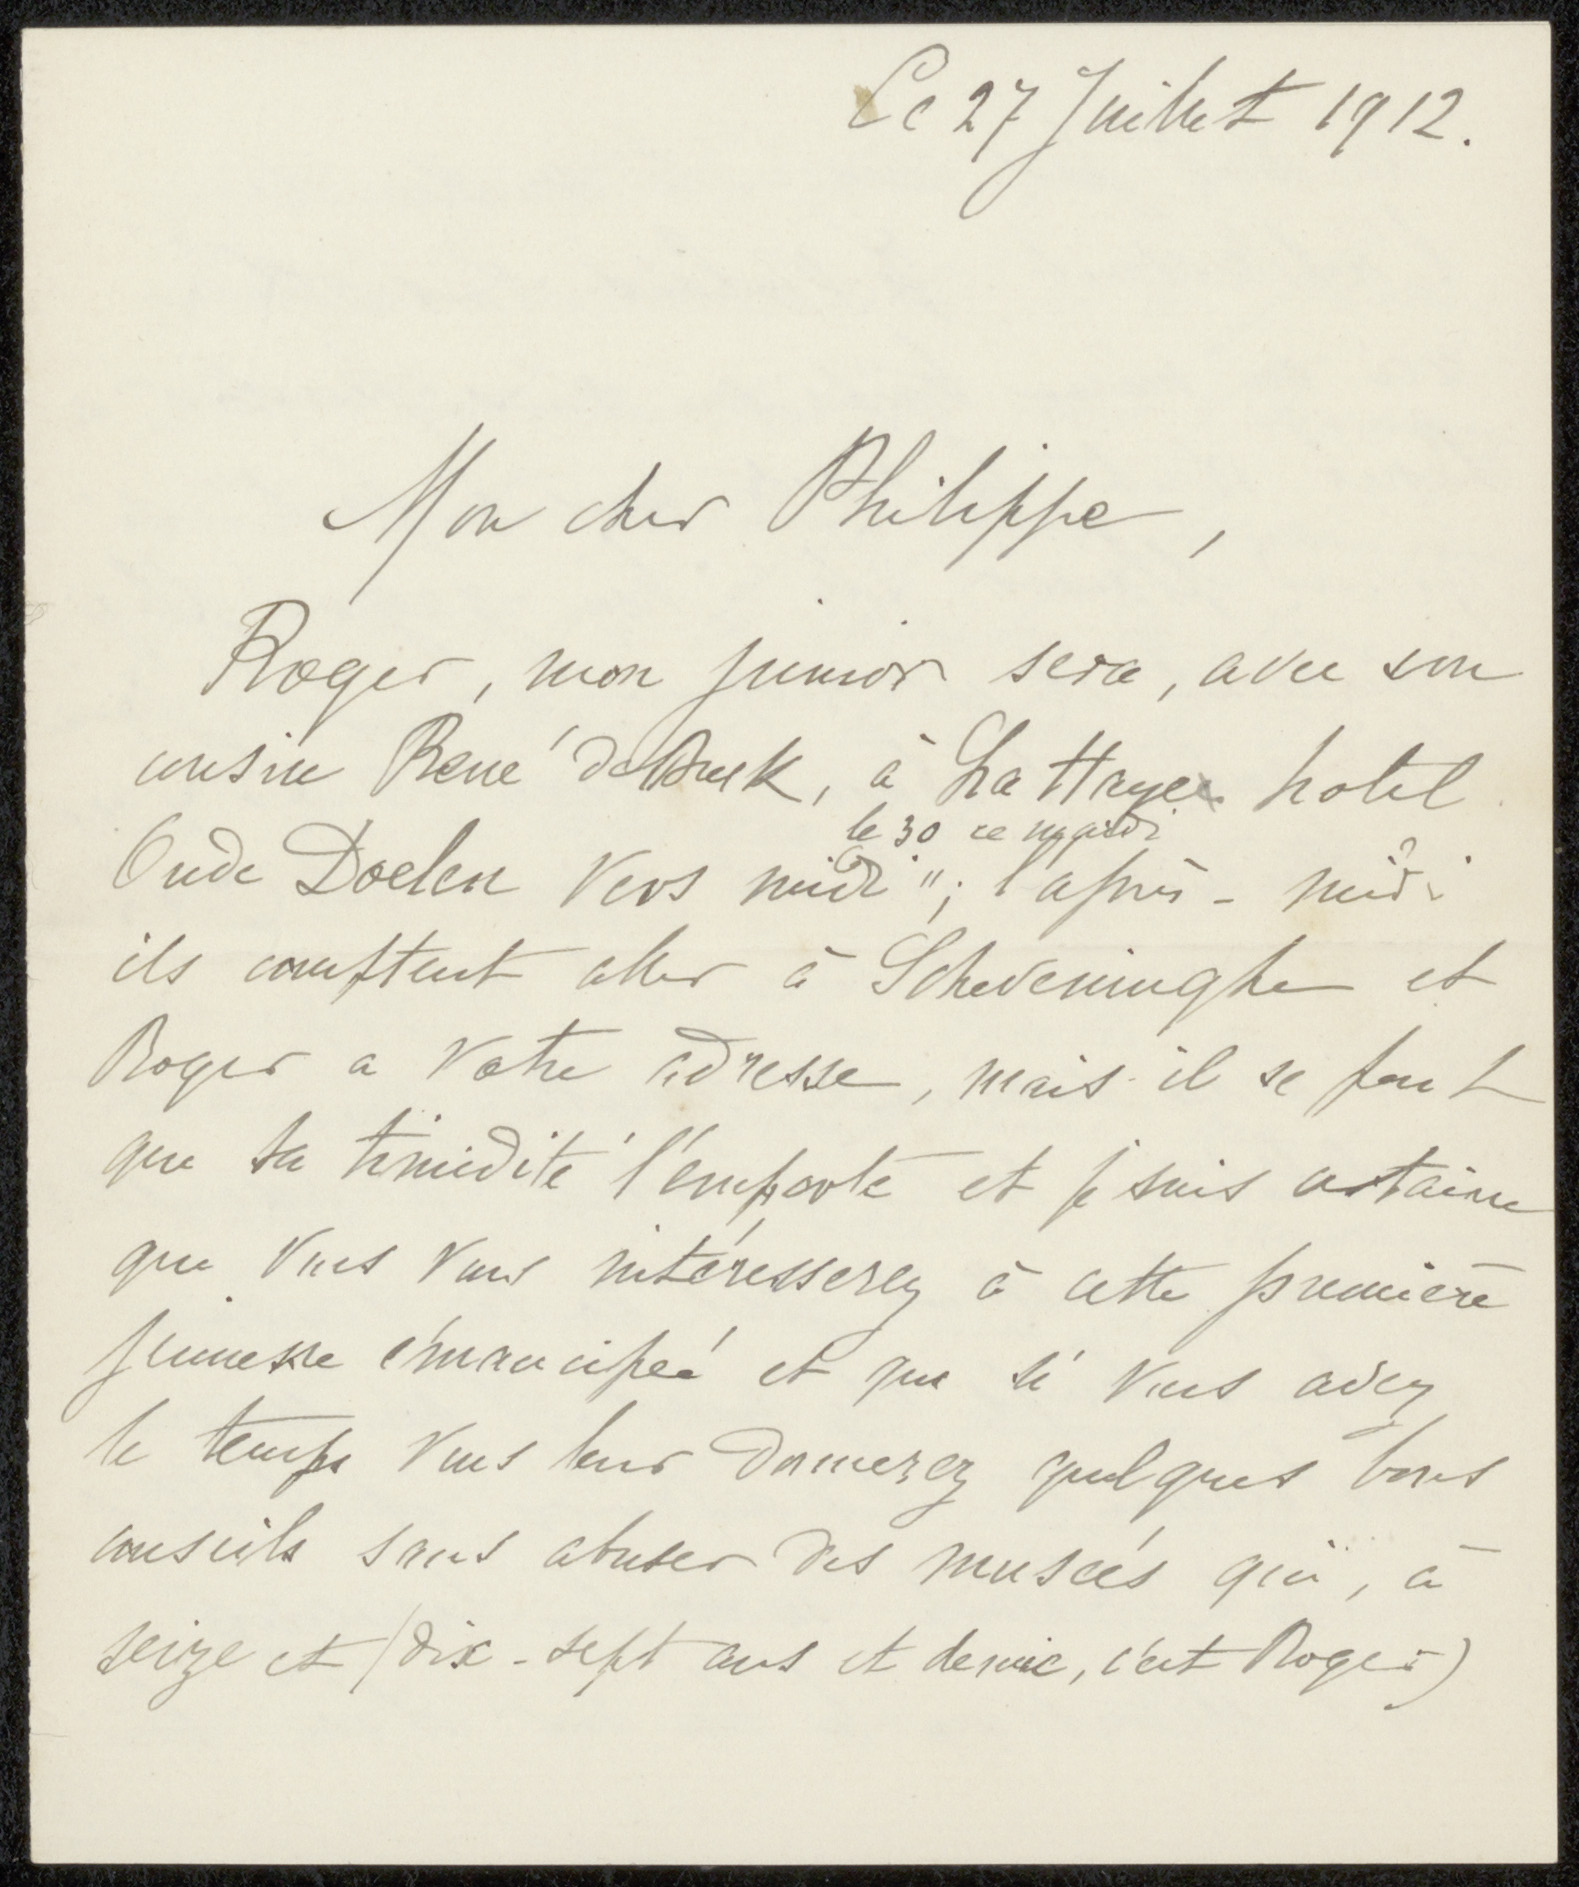 Le 27 Juillet 1912.
Mon cher Philippe,
Roger, mon junior sera, avec son
cousin René, à La Haye hotel
le 30 ce mardi
Oude Doelen vers midi "; l'après-midi
ils comptent aller à Scheveninghe et
Roger a votre adresse, mais il se peut
que sa timidité l'emporte et je suis certaine
que vous vous intéresserez à cette première
jeunesse émancipée et que si vous avez
le temps vous leur donnerez quelques bons
conseils sans abuser des musées qui, à
seize et (dix-sept ans et demie, c'est Roger)